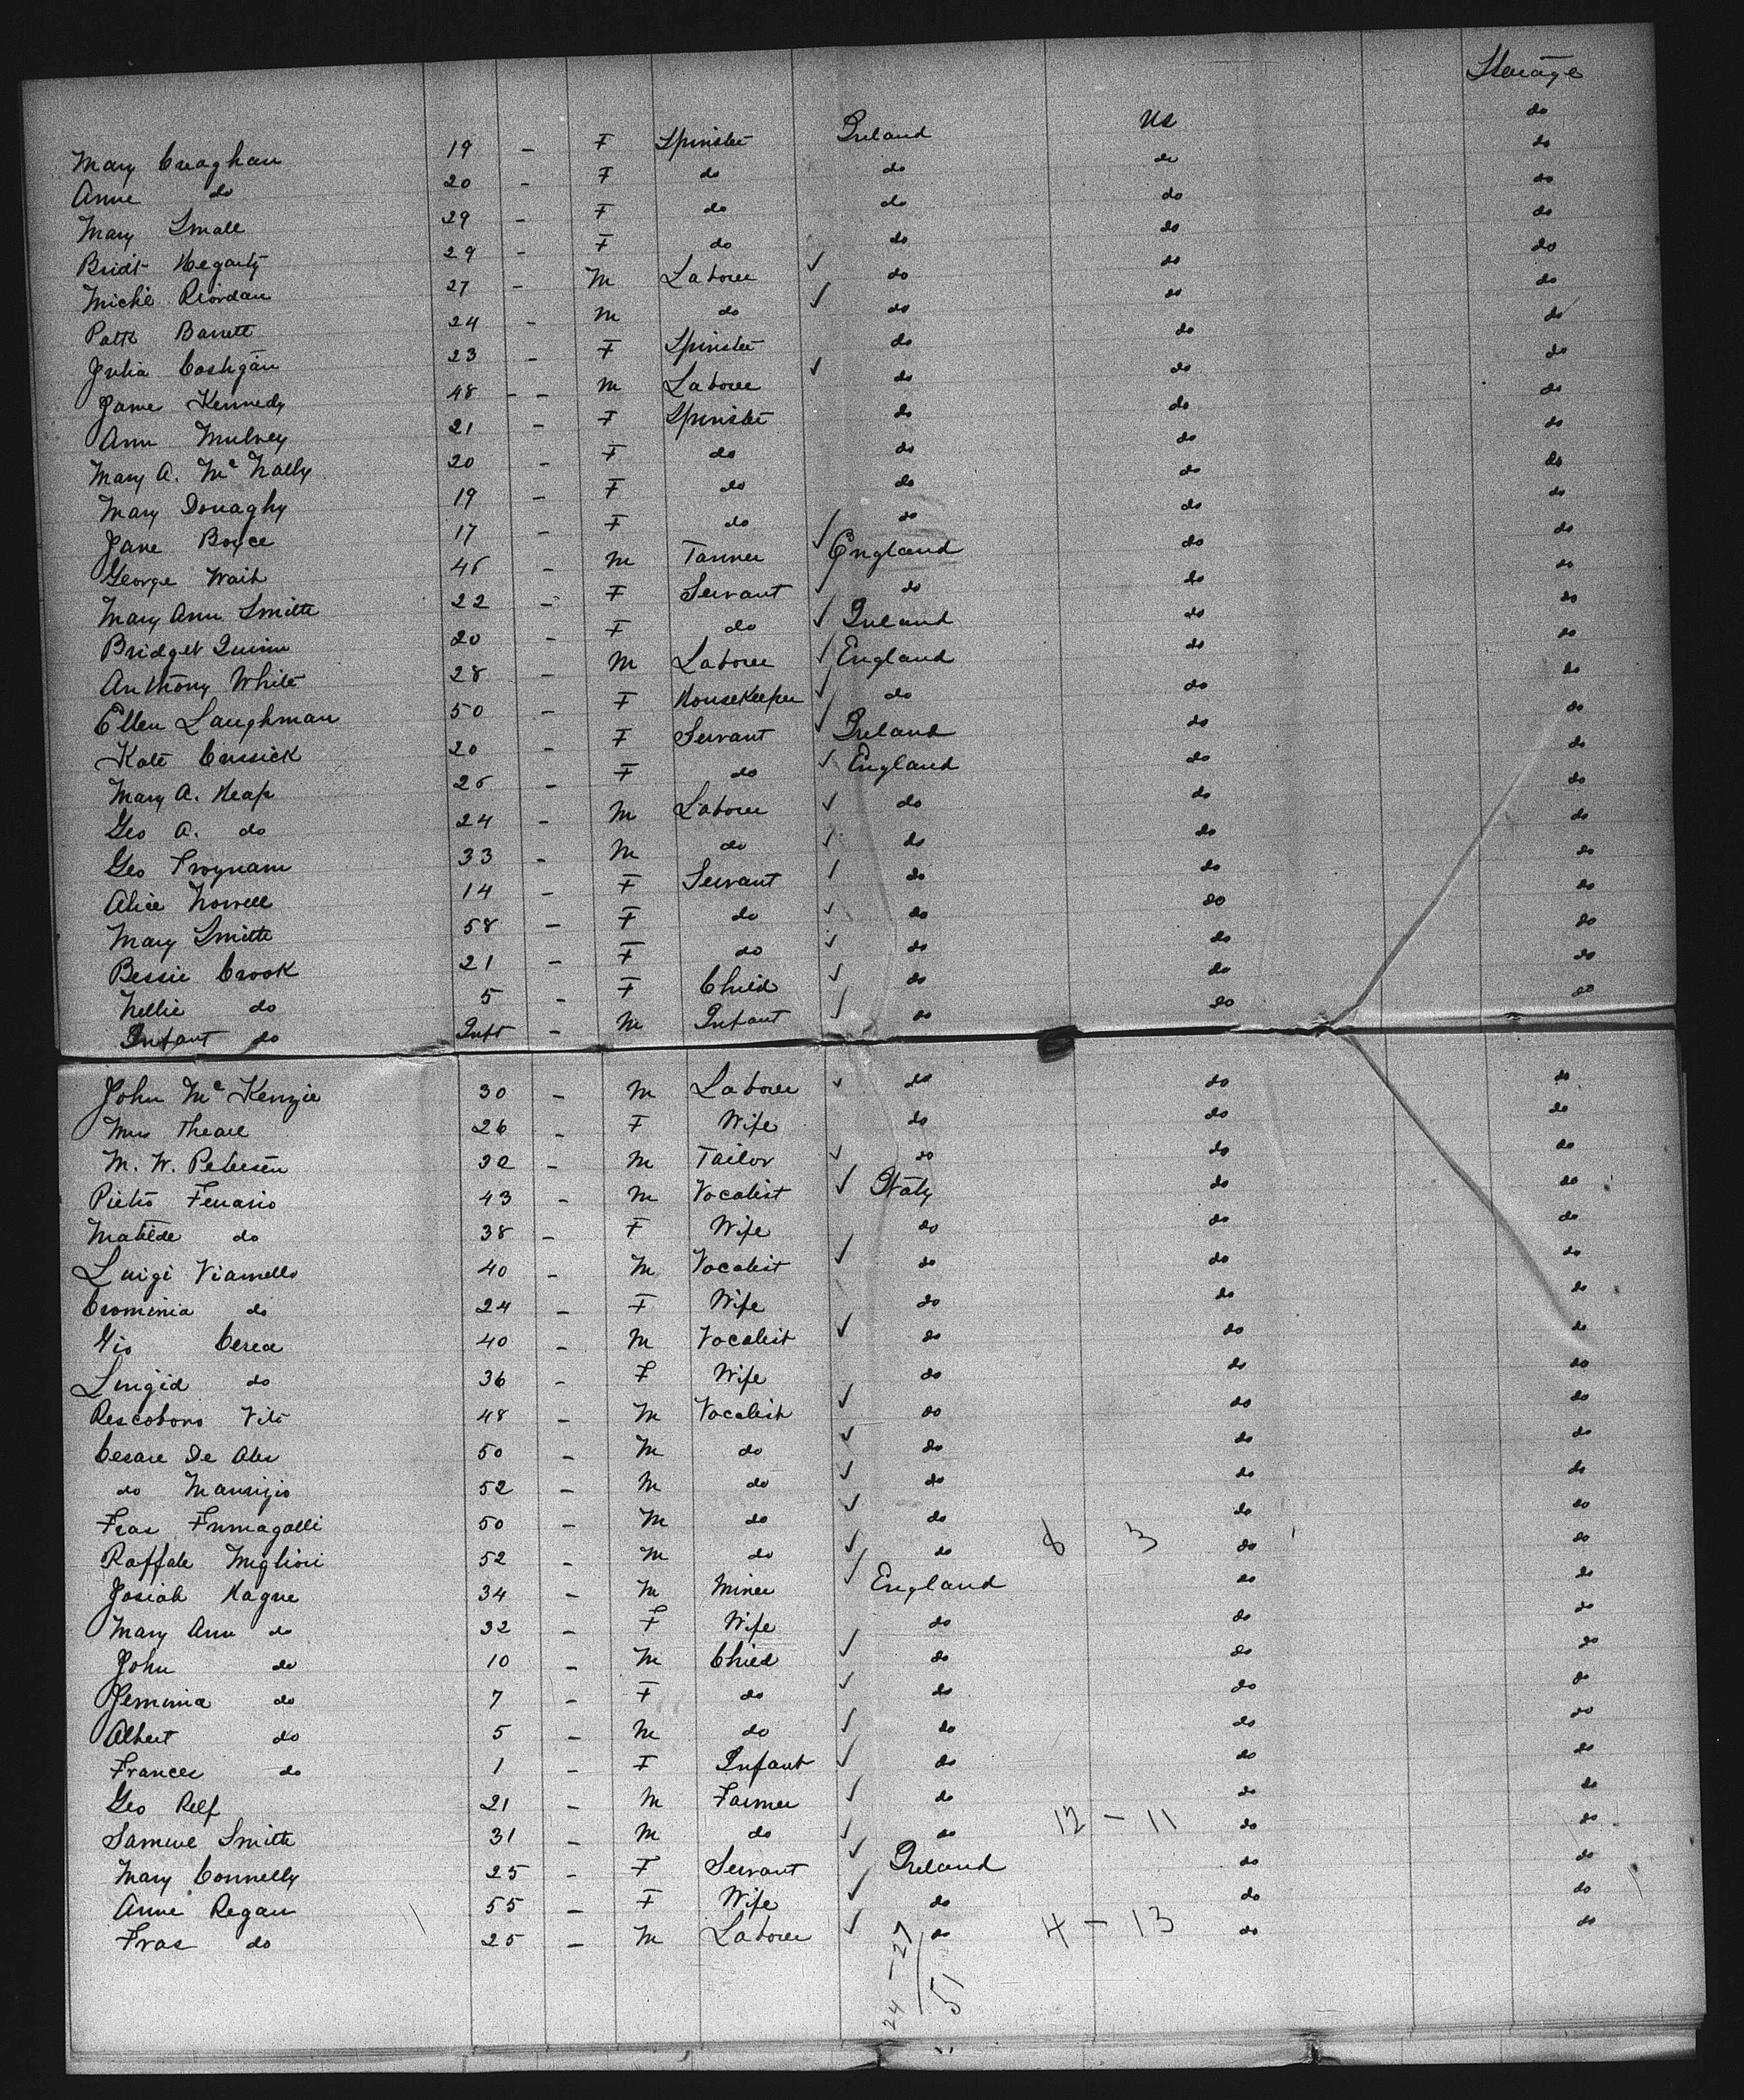 Steerage
Mary Creaghan 19 - F Spinster Ireland US do
Anne do 20 - F do do do do
Mary Small 29 - F do do do do
Bridt Hegarty 29 - F do do do do
Michl Riordan 27 - M Laborer ✓ do do do
Patk Barrett 24 - M do ✓ do do do
Julia Costigan 23 - F Spinster do do do
Jame Kennedy 48 - - M Laborer ✓ do do do
Ann Mulvey 21 - F Spinster do do do
Mary A. McNally 20 - F do do do do
Mary Donaghy 19 - F do do do do
Jane Boyce 17 - F do do do do
George Wait 45 - M Tanner ✓ England do do
Mary Ann Smith 22 - F Servant ✓ do do do
Bridget Quinn 20 - F do ✓ Ireland do do
Anthony White 28 - M Laborer ✓ England do do
Ellen Laughman 50 - F Housekeeper ✓ do do do
Kate Cussick 20 - F Servant ✓ Ireland do do
Mary A. Heap 25 - F do ✓ England do do
Geo A. do 24 - M Laborer ✓ do do do
Geo 33 - M do ✓ do do do
Alice 14 - F Servant ✓ do do do
Mary Smith 58 - F do ✓ do do do
Bessie Crook 21 - F do ✓ do do do
Nellie do 5 - F Child ✓ do do do
Infant do Inft - M Infant ✓ do do do
John McKenzie 30 - M Laborer ✓ do do do
Mrs 26 - F Wife do do do
M. W. Petersen 32 - M Tailor ✓ do do do
Pietro Ferrario 43 - M Vocalist ✓ Italy do do
Matilde do 38 - F Wife do do do
Luigi Viannello 40 - M Vocalist ✓ do do do
Erominia do 24 - F Wife do do do
Gio Cerea 40 - M Vocalist ✓ do do do
Luigia do 36 - F Wife do do do
Vito 48 - M Vocalist ✓ do do do
Cesare De 50 - M do ✓ do do do
do Maurizio 52 - M do ✓ do do do
Fras Fumagalli 50 - M do ✓ do do do
Raffale Migliori 52 - M do ✓ do 8 3 do do
Josiah Hague 34 - M Miner ✓ England do do
Mary Ann do 32 - F Wife do do do
John do 10 - M Child ✓ do do do
Jemima do 7 - F do ✓ do do do
Albert do 5 - M do ✓ do do do
Frances do 1 - F Infant ✓ do do do
Geo Relf 21 - M Farmer ✓ do do do
Samuel Smith 31 - M do ✓ do 12 - 11 do do
Mary Connelly 25 - F Servant ✓ Ireland do do
Anne Regan 55 - F Wife ✓ do do do
Fras do 25 - M Laborer ✓ do 4 - 13 do do
24 - 27
51